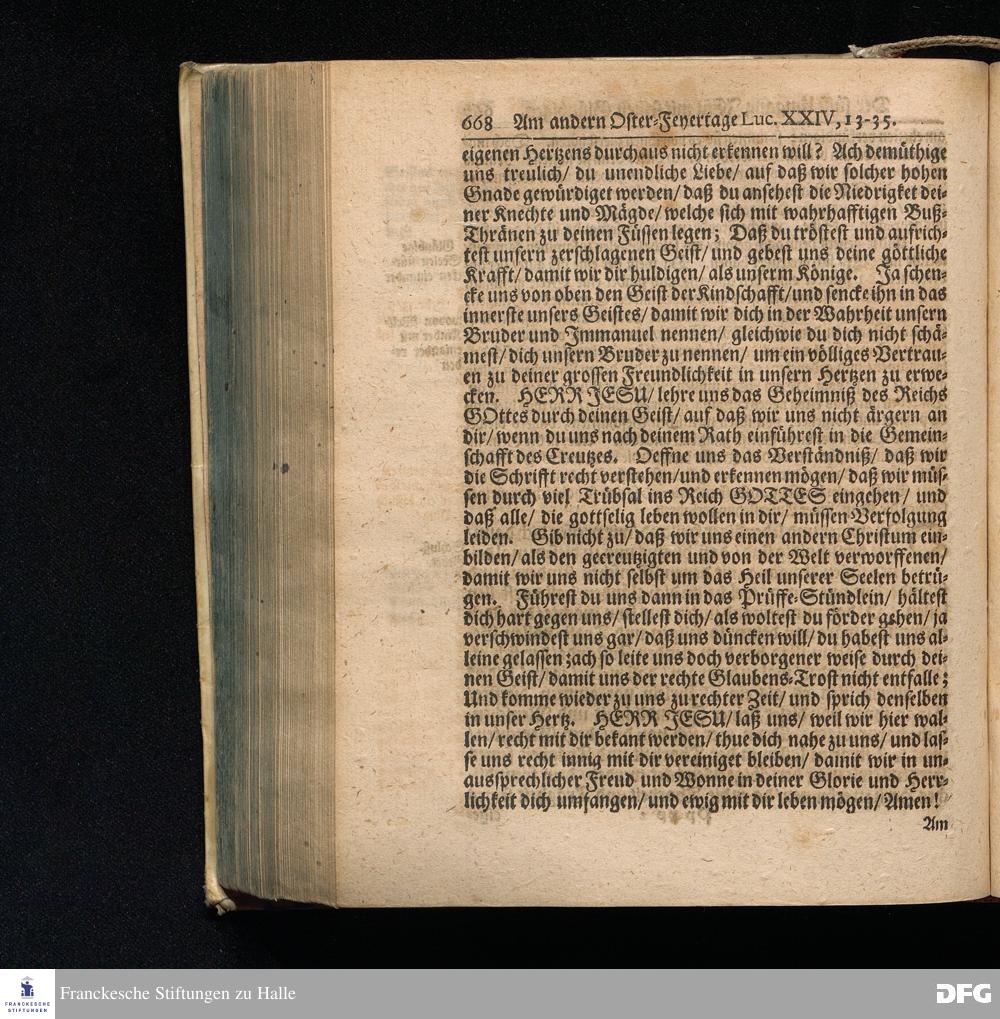 668 Am andern Oster-Feyertage Luc. XXIV, 13-35.
eigenen Hertzens durchaus nicht erkennen will? Ach demüthige
uns treulich/ du unendliche Liebe/ auf daß wir solcher hohen
Gnade gewürdiget werden/ daß du ansehest die Niedrigket dei-
ner Knechte und Mägde/ welche sich mit wahrhafftigen Buß-
Thränen zu deinen Füssen legen; Daß du tröstest und aufrich-
test unsern zerschlagenen Geist/ und gebest uns deine göttliche
Krafft/ damit wir dir huldigen/ als unserm Könige. Ja schen-
cke uns von oben den Geist der Kindschafft/ und sencke ihn in das
innerste unsers Geistes/ damit wir dich in der Wahrheit unsern
Bruder und Immanuel nennen/ gleichwie du dich nicht schä-
mest/ dich unsern Bruder zu nennen/ um ein völliges Vertrau-
en zu deiner grossen Freundlichkeit in unsern Hertzen zu erwe-
cken. HERR JESU/ lehre uns das Geheimniß des Reichs
GOttes durch deinen Geist/ auf daß wir uns nicht ärgern an
dir/ wenn du uns nach deinem Rath einführest in die Gemein-
schafft des Creutzes. Oeffne uns das Verständniß/ daß wir
die Schrifft recht verstehen/ und erkennen mögen/ daß wir müs-
sen durch viel Trübsal ins Reich GOTTES eingehen/ und
daß alle/ die gottselig leben wollen in dir/ müssen Verfolgung
leiden. Gib nicht zu/ daß wir uns einen andern Christum ein-
bilden/ als den gecreutzigten und von der Welt verworffenen/
damit wir uns nicht selbst um das Heil unserer Seelen betrü-
gen. Führest du uns dann in das Prüffe-Stündlein/ hältest
dich hart gegen uns/ stellest dich/ als woltest du förder gehen/ ja
verschwindest uns gar/ daß uns düncken will/ du habest uns al-
leine gelassen; ach so leite uns doch verborgener weise durch dei-
nen Geist/ damit uns der rechte Glaubens-Trost nicht entfalle;
Und komme wieder zu uns zu rechter Zeit/ und sprich denselben
in unser Hertz. HERR JESU/ laß uns/ weil wir hier wal-
len/ recht mit dir bekant werden/ thue dich nahe zu uns/ und las-
se uns recht innig mit dir vereiniget bleiben/ damit wir in un-
aussprechlicher Freud und Wonne in deiner Glorie und Herr-
lichkeit dich umfangen/ und ewig mit dir leben mögen/ Amen!
Am
FRANCKESCHE
STIFTUNGEN
Franckesche Stiftungen zu Halle
DFG